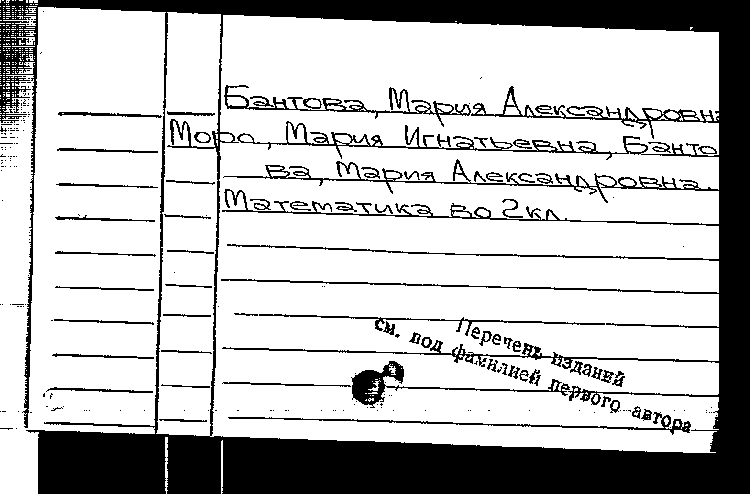 Бантова, Мария Александровна
Моро, Мария Игнатьевна, Банто
ва, Мария Александровна.
Математика во 2кл.
Перечень изданий
см. под фамилией первого автора